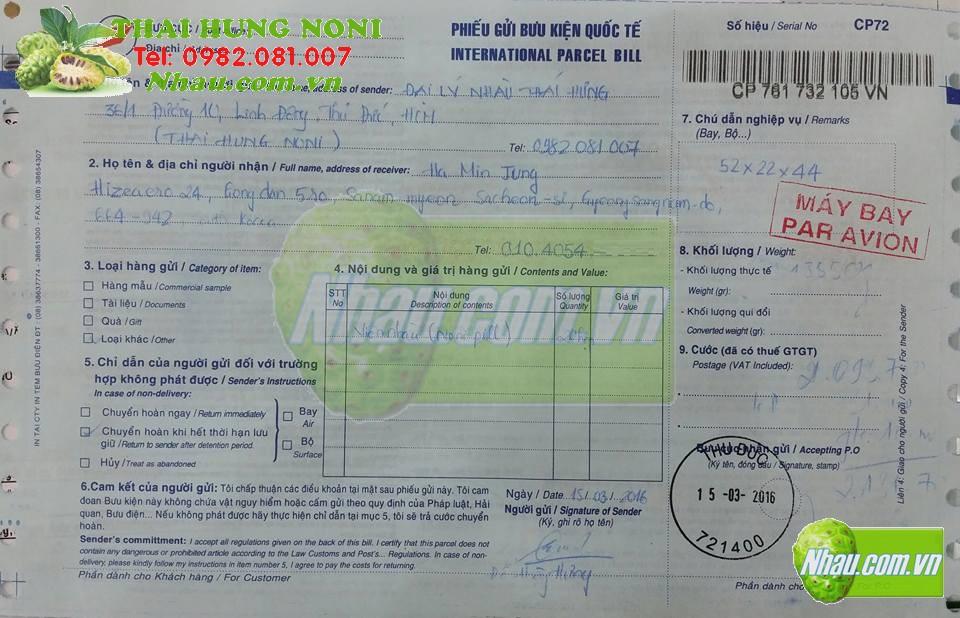 THAI HUNG NONI
Tel: 0982.081.007
Nhau.com.vn
PHIẾU GỬI BƯU KIỆN QUỐC TẾ
INTERNATIONAL PARCEL BILL
Số hiệu / Serial No CP72
CP 761 732 105 VN
Địa chỉ
address of sender: ĐẠI LÝ NHÀU THÁI HƯNG
36/1 Đường 10, Linh Đông, Thủ Đức, HCM
(THAI HUNG NONI) Tel: 0982 081 007
2. Họ tên & địa chỉ người nhận / Full name, address of receiver: Ha Min Jung
Hizeaero 24, Gongdan 5ro, Sanam myeon Sacheon-si, Gyeongsangnam-do,
664-942 Korea
Tel: 010.4054
7. Chú dẫn nghiệp vụ / Remarks
(Bay, Bộ...)
52x22x44
MÁY BAY
PAR AVION
3. Loại hàng gửi / Category of item:
Hàng mẫu / Commercial sample
Tài liệu / Documents
Quà / Gift
Loại khác / Other
4. Nội dung và giá trị hàng gửi / Contents and Value:
STT
No
Nội dung
Description of contents
Số lượng
Quantity
Giá trị
Value
Viên nhàu (noni pill)
8. Khối lượng / Weight:
- Khối lượng thực tế
Weight (gr):
- Khối lượng qui đổi
Converted weight (gr):
9. Cước (đã có thuế GTGT)
Postage (VAT Included):
5. Chỉ dẫn của người gửi đối với trường
hợp không phát được / Sender's Instructions
In case of non-delivery:
Chuyển hoàn ngay / Return immediately
Chuyển hoàn khi hết thời hạn lưu
giữ / Return to sender after detention period.
Hủy / Treat as abandoned
Bay
Air
Bộ
Surface
Bưu cục nhận gửi / Accepting P.O
(Ký tên, đóng dấu / Signature, stamp)
THỦ ĐỨC
15-03-2016
721400
6.Cam kết của người gửi: Tôi chấp thuận các điều khoản tại mặt sau phiếu gửi này. Tôi cam
đoan Bưu kiện này không chứa vật nguy hiểm hoặc cấm gửi theo quy định của Pháp luật, Hải
quan, Bưu điện... Nếu không phát được hãy thực hiện chỉ dẫn tại mục 5, tôi sẽ trả cước chuyển
hoàn.
Sender's committment: I accept all regulations given on the back of this bill. I certify that this parcel does not
contain any dangerous or prohibited article according to the Law Customs and Post's... Regulations. In case of non-
delivery, please kindly follow my instructions in item number 5, I agree to pay the costs for returning.
Phần dành cho Khách hàng / For Customer
Ngày / Date 15/03/2016
Người gửi / Signature of Sender
(Ký, ghi rõ họ tên)
Phần dành cho
Nhau.com.vn
Nhau.com.vn
Liên 4: Giao cho người gửi / Copy 4: For the Sender
IN TẠI CTY IN TEM BƯU ĐIỆN ĐT: (08) 38637774 - 38651300 - FAX: (08) 38654307